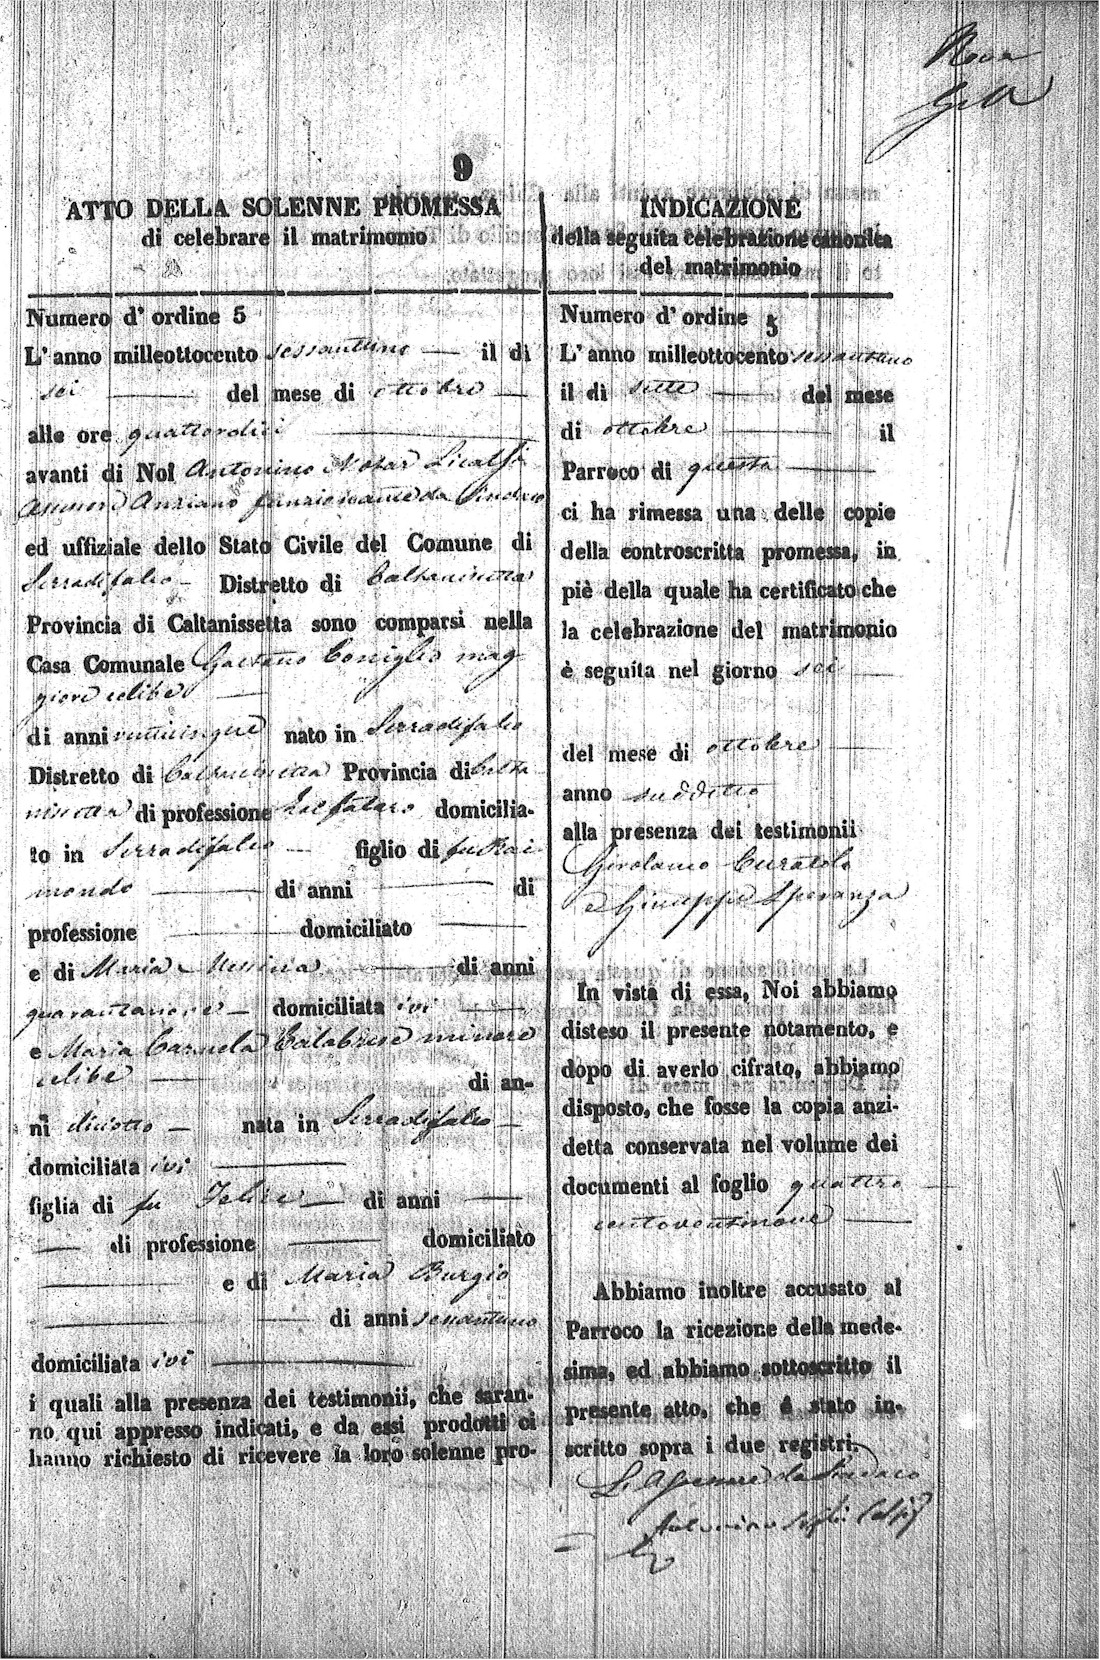 Nove
9
ATTO DELLA SOLENNE PROMESSA
di celebrare il matrimonio
Numero d' ordine 5
L' anno milleottocento sessantuno il di
sei del mese di ottobre
alle ore quattordici
avanti di Noi Antonino Notar Licalsi
Assessore Anziano funzionante da Sindaco
ed uffiziale dello Stato Civile del Comune di
Serradifalco Distretto di Caltanissetta
Provincia di Caltanissetta sono comparsi nella
Casa Comunale Gaetano Coniglio mag
giore celibe
di anni venticinque nato in Serradifalco
Distretto di Caltanissetta Provincia di Calta
nissetta di professione Zolfataro domicilia-
to in Serradifalco figlio di fu Rai
mondo di anni di
professione domiciliato
e di Maria Messina di anni
quarantanove domiciliata ivi
e Maria Carmela Calabrese minore
celibe di an-
ni diciotto nata in Serradifalco
domiciliata ivi
figlia di fu Felice di anni
di professione domiciliato
e di Maria Burgio
di anni sessantuno
domiciliata ivi
i quali alla presenza dei testimonii, che saran-
no qui appresso indicati, e da essi prodotti ci
hanno richiesto di ricevere la loro solenne pro-
INDICAZIONE
della seguita celebrazione canonica
del matrimonio
Numero d' ordine 5
L' anno milleottocento sessantuno
il di sette del mese
di ottobre il
Parroco di questa
ci ha rimessa una delle copie
della controscritta promessa, in
piè della quale ha certificato che
la celebrazione del matrimonio
è seguita nel giorno sei
del mese di ottobre
anno suddetto
alla presenza dei testimonii
Girolamo Curatolo
e Giuseppe Speranza
In vista di essa, Noi abbiamo
disteso il presente notamento, e
dopo di averlo cifrato, abbiamo
disposto, che fosse la copia anzi-
detta conservata nel volume dei
documenti al foglio quattro
centoventinove
Abbiamo inoltre accusato al
Parroco la ricezione della mede-
sima, ed abbiamo sottoscritto il
presente atto, che è stato in-
scritto sopra i due registri.
L'Assessore da Sindaco
Antonino